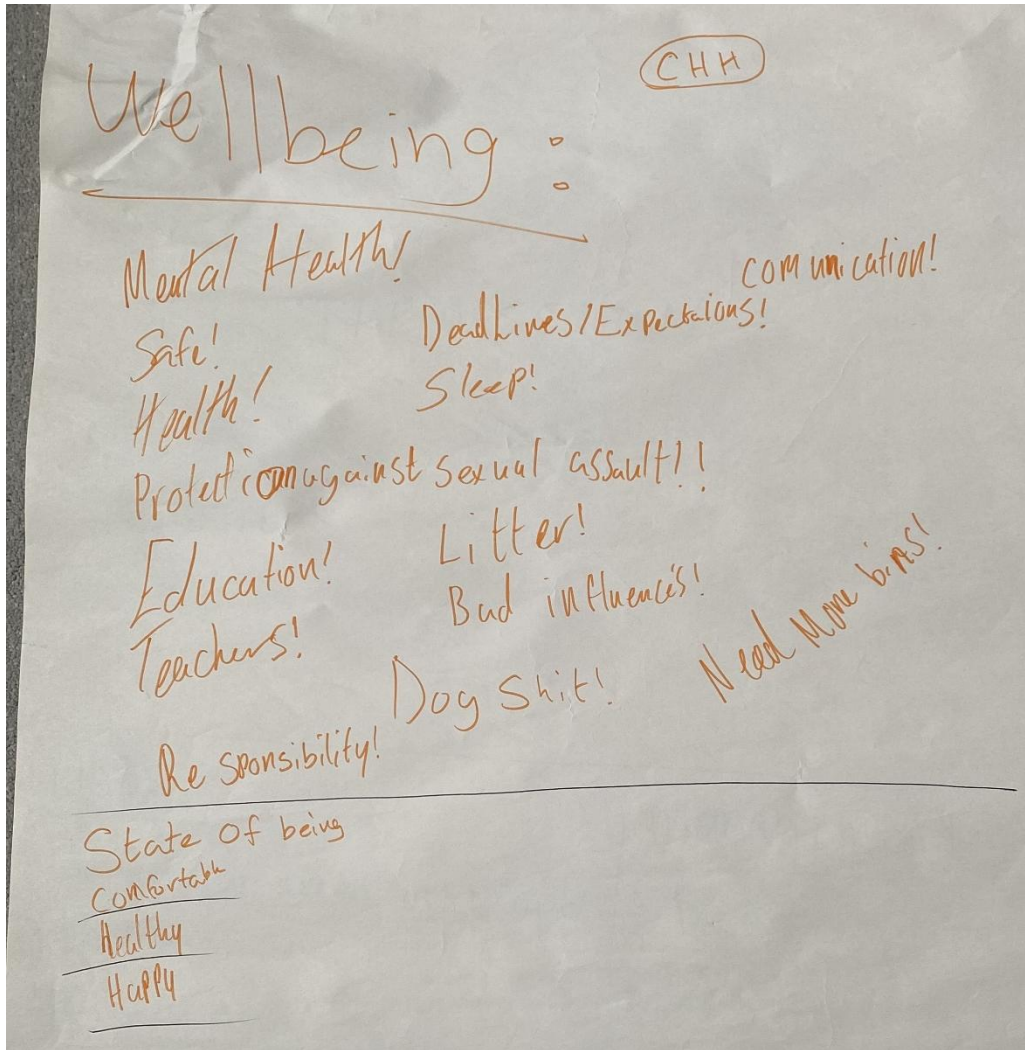 CHH
Wellbeing :
Mental Health!
communication!
Safe!
Deadlines/Expectaions!
Health!
Sleep!
Protection against sexual assault!!
Education!
Litter!
Teachers!
Bad influence's!
Need More bins!
Dog Shit!
Responsibility!
State of being
Comfortable
Healthy
Happy